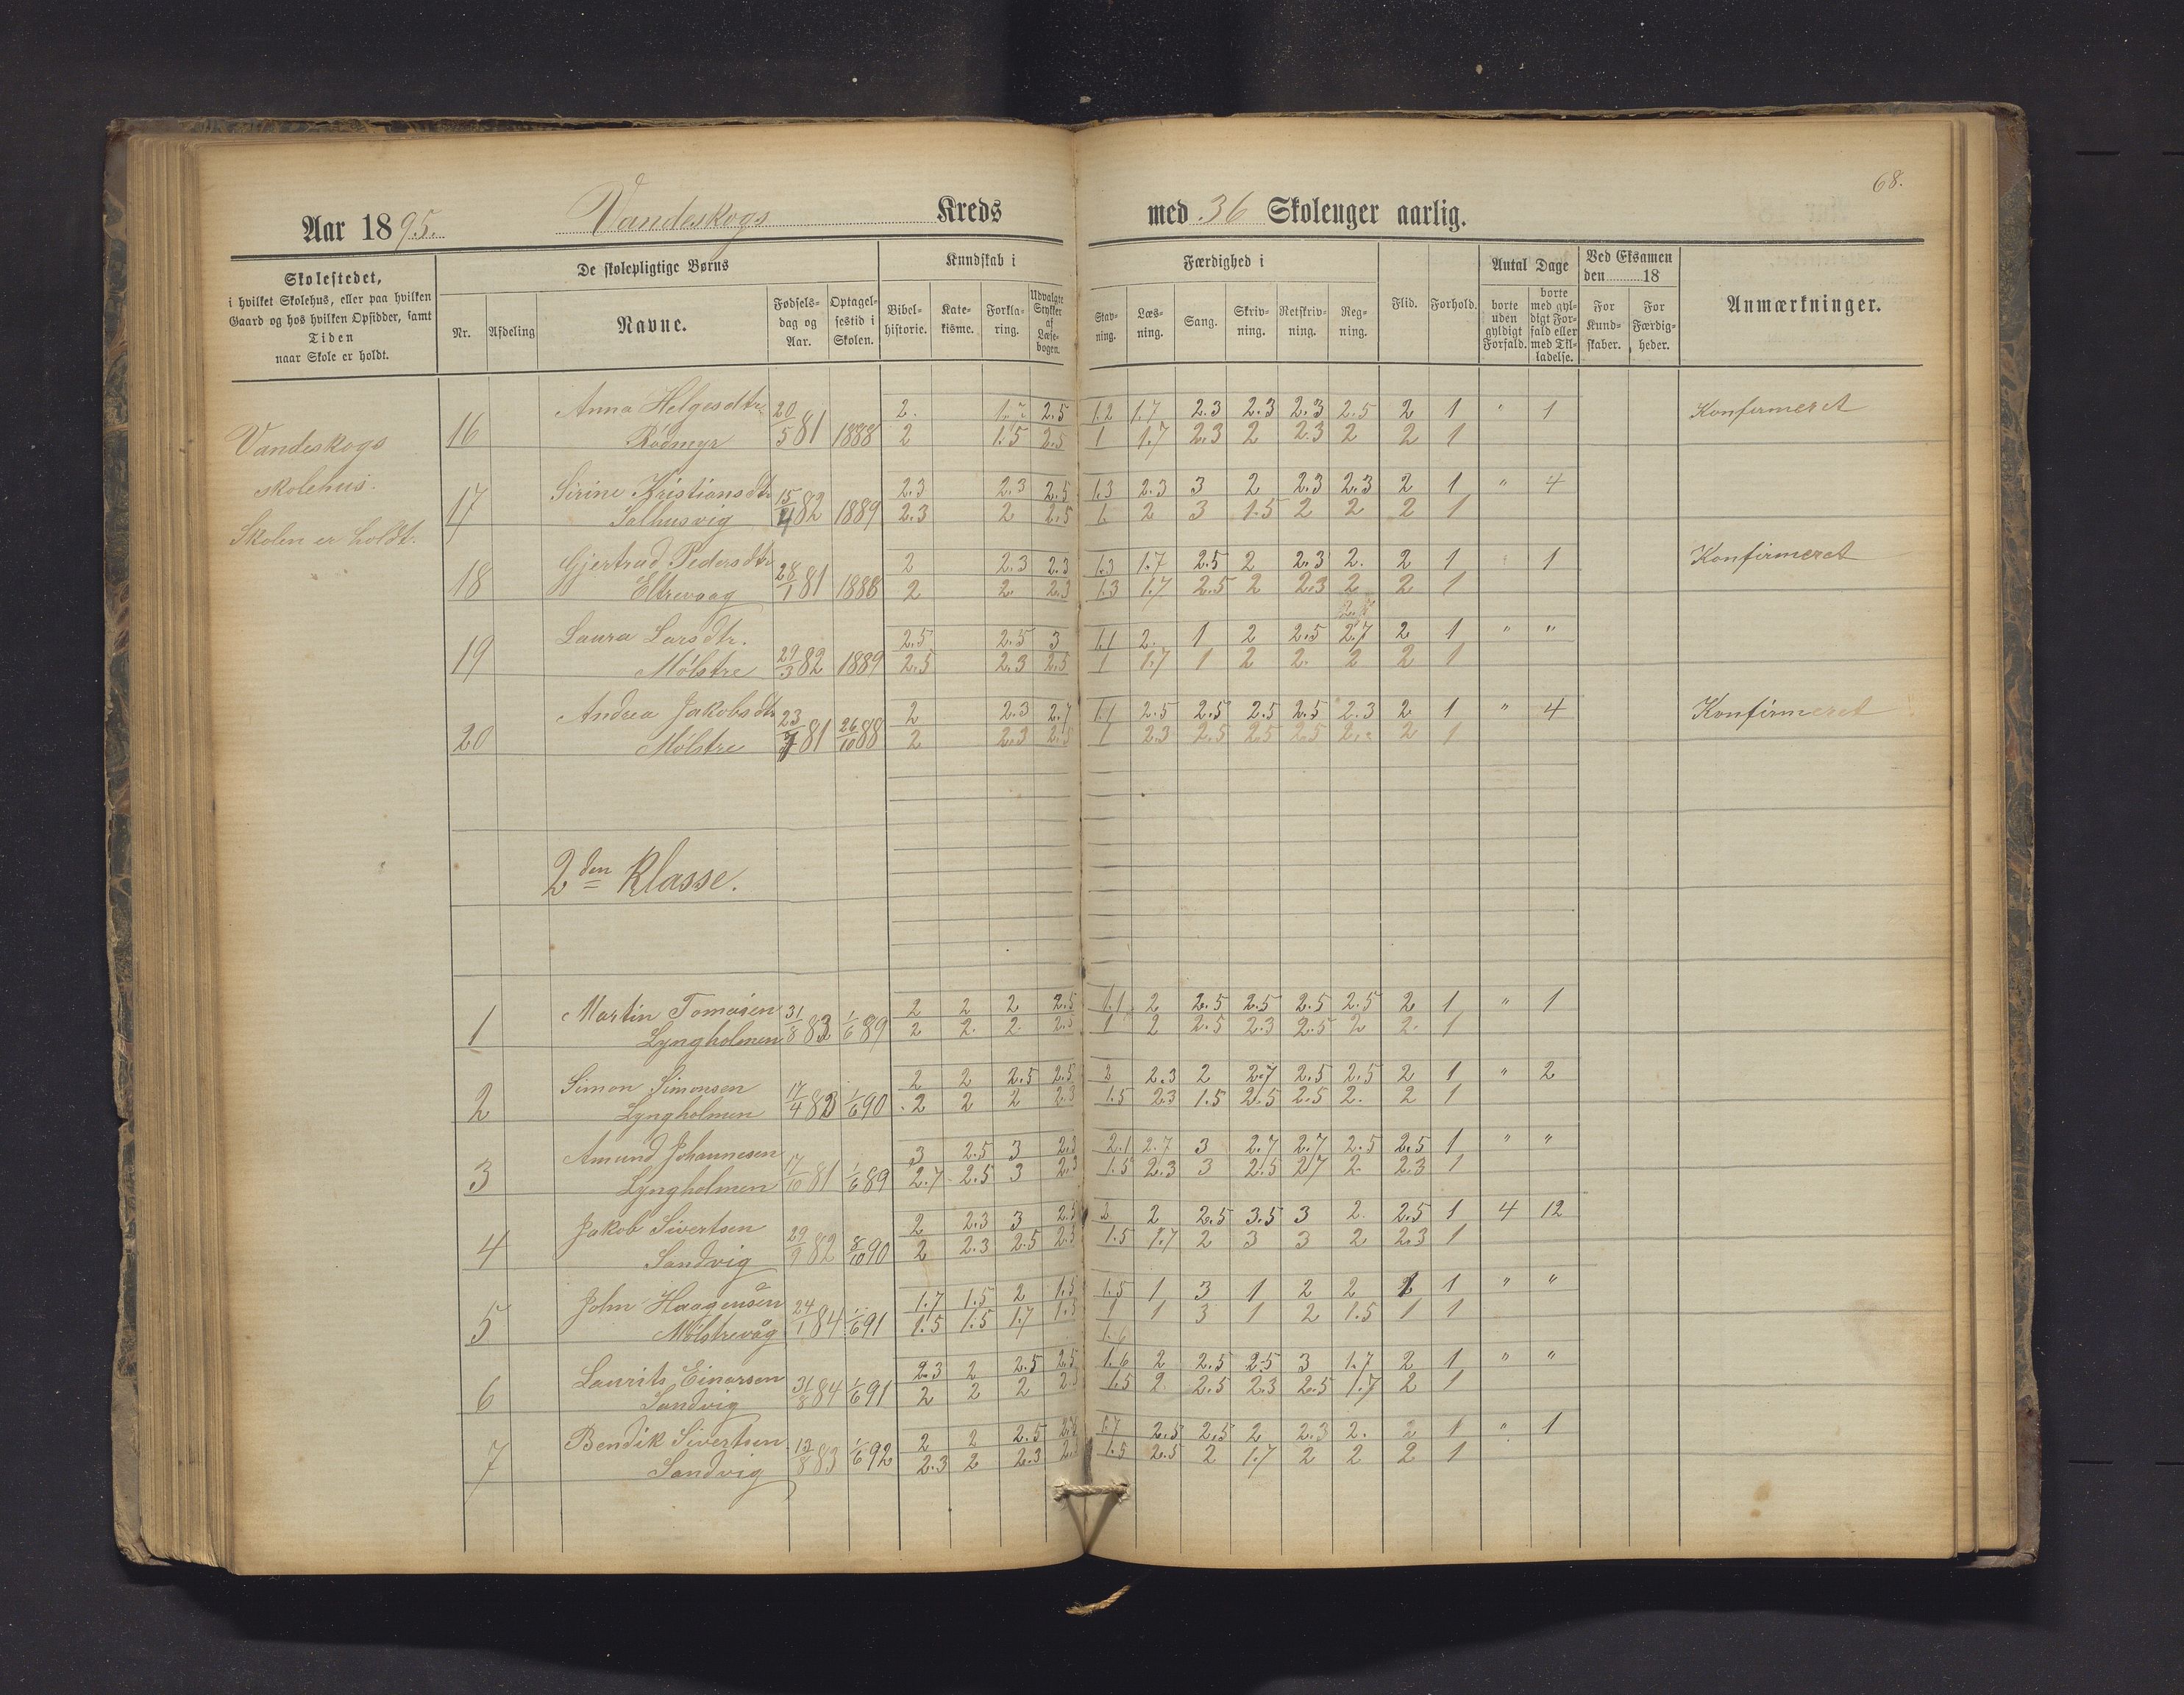 68.
Aar 1895. Vandeskogs Kreds med 36 Skoleuger aarlig.
Skolestedet,
i hvilket Skolehus, eller paa hvilken
Gaard og hos hvilken Opsidder, samt
Tiden
naar Skole er holdt.
De skolepligtige Børns
Nr. Afdeling Navne. Fødselsdag og Aar. Optagelsestid i Skolen.
Kundskab i
Bibelhistorie. Katekisme. Forklaring. Udvalgte Stykker af Læsebogen.
Færdighed i
Stavning. Læsning. Sang. Skrivning. Retskrivning. Regning.
Flid. Forhold.
Antal Dage
borte uden gyldigt Forfald. borte med gyldigt Forfald eller med Tilladelse.
Ved Eksamen den 18
For Kundskaber. For Færdigheder.
Anmærkninger.
Vandeskogs
skolehus.
Skolen er holdt.
16 Anna Helgesdtr. 20/5 81 1888 2. 2.5 1.2 1.7 2.3 2.3 2.3 2.5 2 1 " 1 Konfirmeret
Rödmyr 2 1.5 2.5 1 1.7 2.3 2 2.3 2 2 1
17 Sirine Kristiansdtr 15/4 82 1889 2.3 2.3 2.5 1.3 2.3 3 2 2.3 2.3 2 1 " 4
Salhusvig 2.3 2 2.5 1. 2 3 1.5 2 2 2 1
18 Gjertrud Pedersdtr 28/1 81 1888 2 2.3 2.3 1.3 1.7 2.5 2 2.3 2. 2 1 1 Konfirmeret
Eltrevaag 2 2. 2.3 1.3 1.7 2.5 2 2.3 2 2 1
19 Laura Larsdtr. 29/3 82 1889 2.5 2.5 3 1.1 2. 1 2 2.5 2.7 2 1 " "
Mölstre 2.5 2.3 2.5 1 1.7 1 2 2. 2 2 1
20 Andrea Jakobsdtr 23/7 81 26/10 88 2 2.3 2.7 1.1 2.5 2.5 2.5 2.5 2.3 2 1 " 4 Konfirmeret
Mölstre 2 2.3 2.5 1 2.3 2.5 2.5 2.5 2 1
2den Klasse.
1 Martin Tomasen 31/8 83 1/6 89 2 2 2 2.5 1.1 2 2.5 2.5 2.5 2.5 2 1 " 1
Lyngholmen 2 2. 2. 2.5 1 2 2.5 2.3 2.5 2 2. 1
2 Simon Simonsen 17/4 83 1/6 90 2 2 2.5 2.5 2 2.3 2 2.7 2.5 2.5 2 1 " 2
Lyngholmen 2 2 2 2.3 1.5 2.3 1.5 2.5 2.5 2. 2 1
3 Amund Johannesen 17/10 81 1/6 89 3 2.5 3 2.3 2.1 2.7 3 2.7 2.7 2.5 2.5 1 " "
Lyngholmen 2.7 2.5 3 2.3 1.5 2.3 3 2.5 2.7 2. 2.3 1
4 Jakob Sivertsen 29/9 82 8/10 90 2 2.3 3 2.5 2 2 2.5 3.5 3 2. 2.5 1 4 12
Sandvig 2 2.3 2.5 2.3 1.5 1.7 2 3 3 2 2.3 1
5 John Haagensen 24/1 84 1/6 91 1.7 1.5 2 1.5 1.5 1 3 1 2 2 1 1 " "
Mölstrevåg 1.5 1.5 1.7 1.5 1 1 3 1 2 1.5 1 1
1.6
6 Laurits Einarsen 31/8 84 1/6 91 2.3 2 2.5 2.5 1.6 2 2.5 2.5 3 1.7 2 1 " "
Sandvig 2 2 2 1.5 2. 2.5 2.3 2.5 1.7 2 1
7 Bendik Sivertsen 83 1/6 92 2 2 2.5 1.7 2.5 2.5 2 2.3 2. 2 1 " 1
Sandvig 2.3 2 2.3 1.5 2.5 2 1.7 2 2 2 1